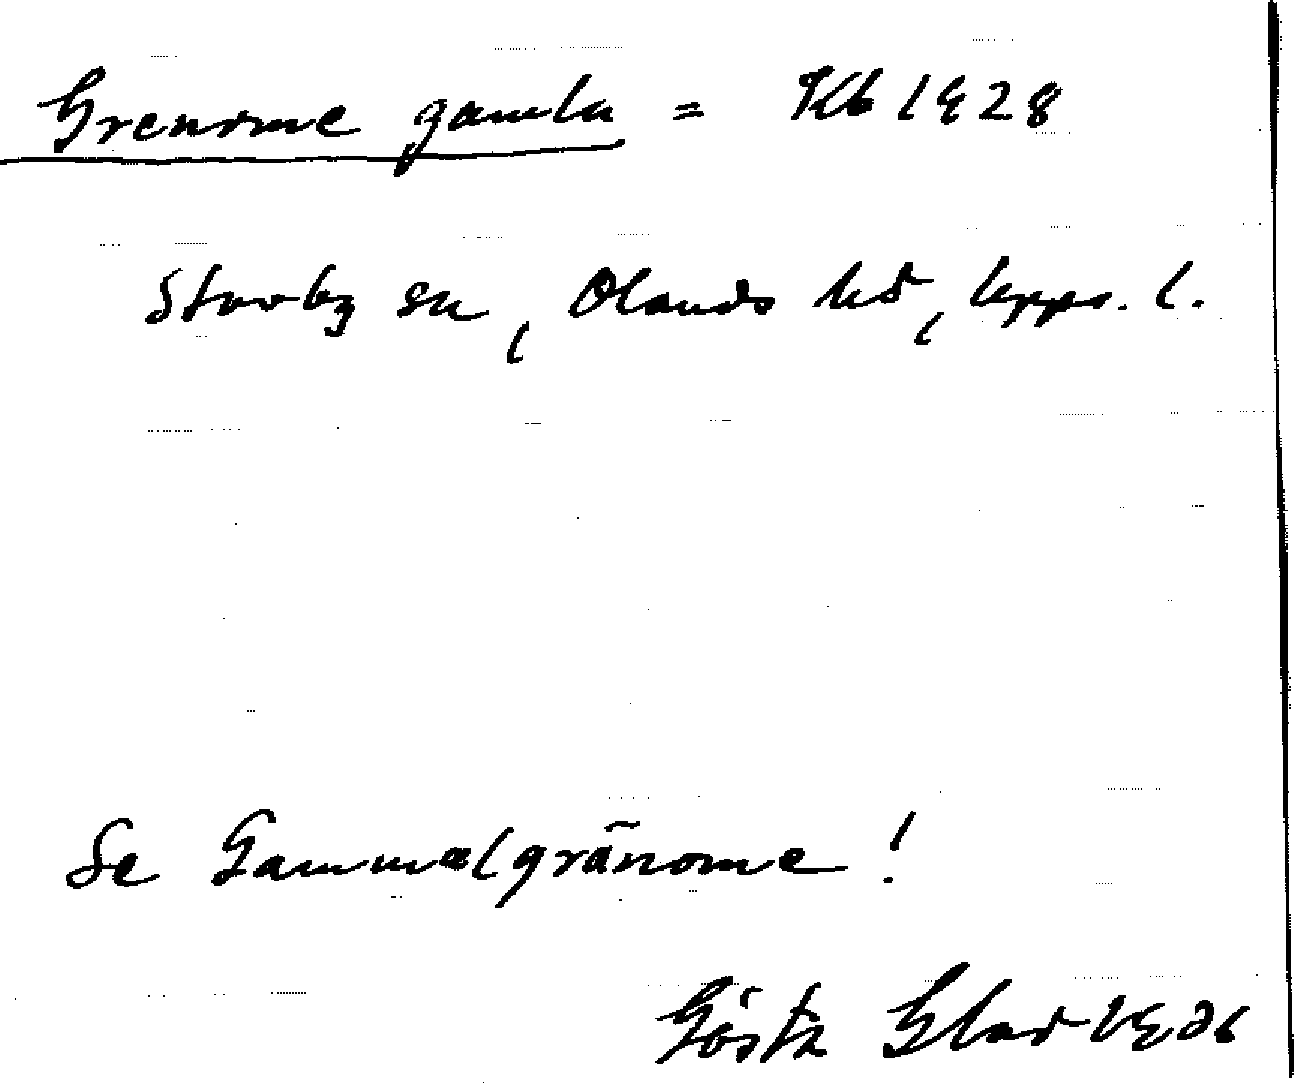 Grenome gamla = Kb 1928
Stavby sn, Olands hd, Upps. l.
Se Gammelgränome!
Gösta Glad